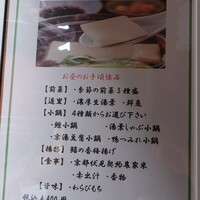 お昼のお手頃懐石
【前菜】・季節の前菜5種盛
【造里】・濃厚生湯葉・鮮魚
【小鍋】4種類からお選び下さい
・鱧小鍋 ・湯葉しゃぶ小鍋
・京湯豆腐小鍋・鴨つみれ小鍋
【揚物】鱧の香梅揚げ
【食事】・京都伏見契約農家米
・赤出汁 ・香物
【甘味】・わらびもち
4,400円